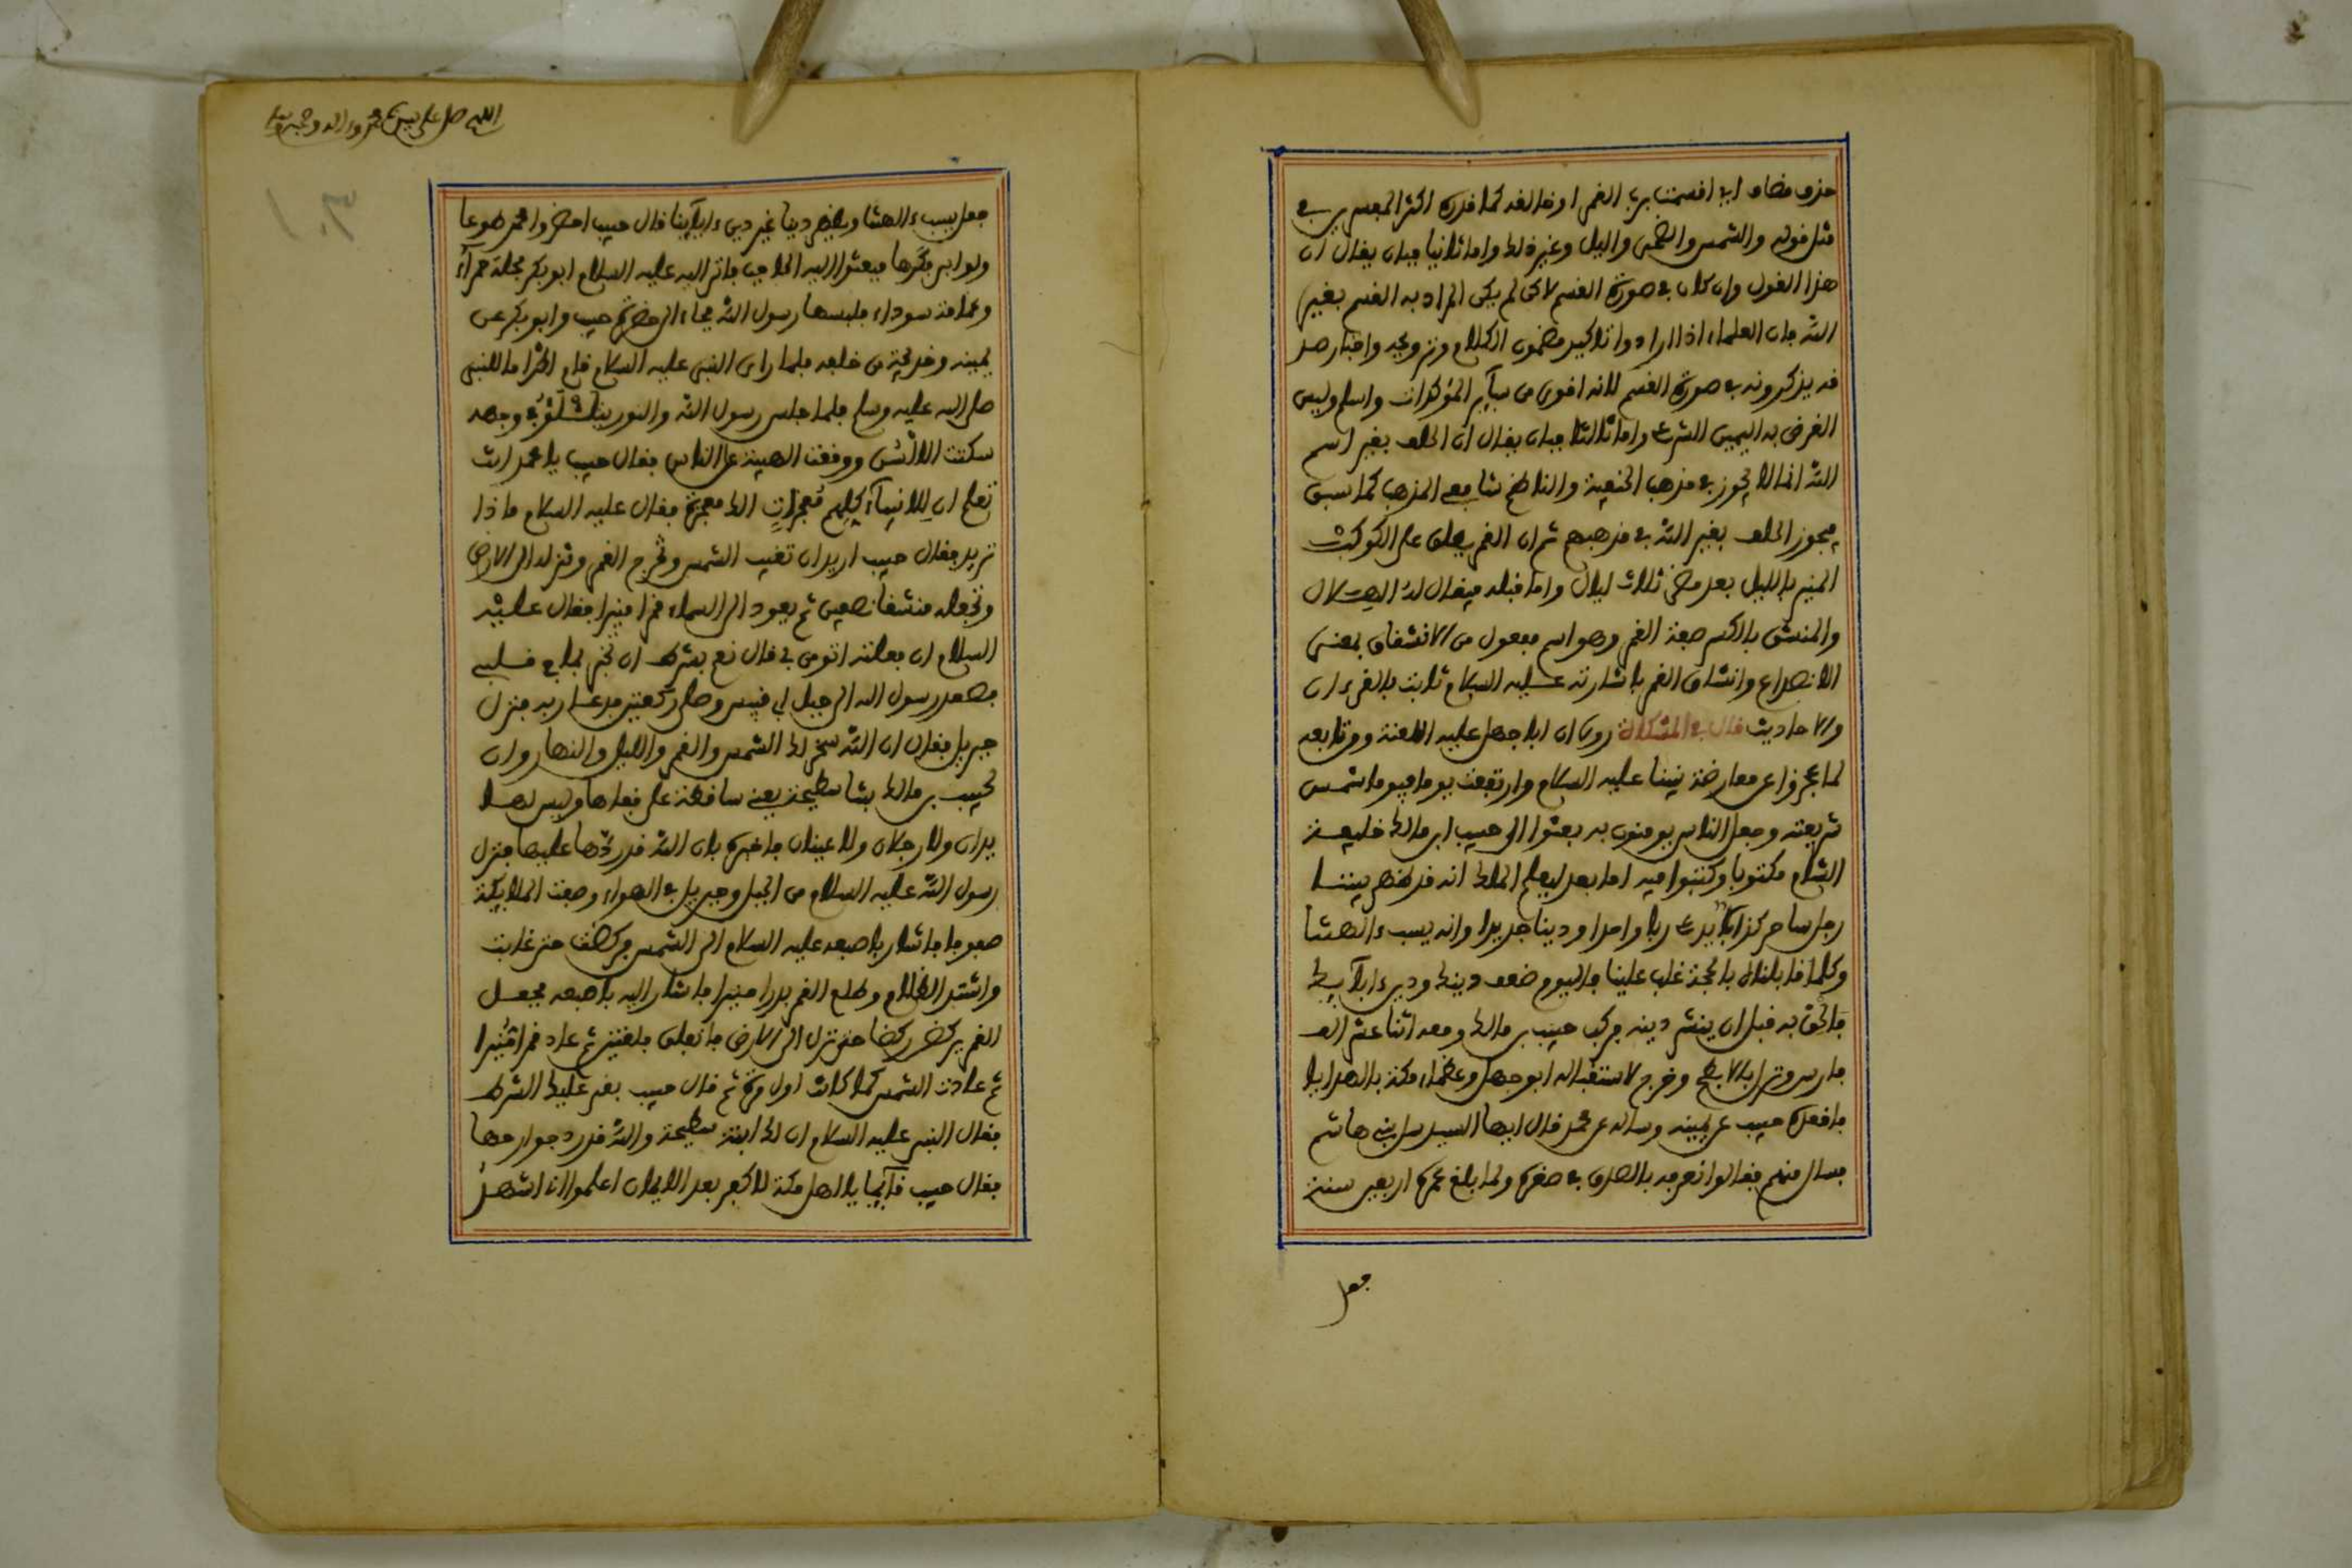 حذف مضاف اي اقسمت برب القمر او خالقه كما قدره اكثر المفسرين في
مثل قوله والشمس والضحى واليل وغير ذلك واما ثانيا فبان يقال ان
هذا القول وان كان في صورة القسم لاكن لم يكن المراد به القسم بغير
الله فان العلماء اذا ارادوا تاكيد مضمون الكلام وترويجه واظهار صد
قه يذكرونه في صورة القسم لانه اقوى من سآير المؤكدات واسلم وليس
الغرض به اليمين الشرعي واما ثالثا فبان يقال ان الحلف بغير اسم
الله انما لا يجوز في مذهب الحنفية والناظم شافعي المذهب كما سبق
فيجوز الحلف بغير الله في مذهبهم ثم ان القمر يطلق على الكوكب
المنير بالليل بعد مضي ثلاث ليال واما قبله فيقال له الهلال
والمنشق بالكسر صفة القمر وهو اسم مفعول من الانشقاق بمعنى
الانصداع وانشقاق القمر باشارته عليه السلام ثابت بالقرءان
والاحاديث قال في المشكاة روي ان ابا جهل عليه اللعنة ومن تابعه
لما عجزوا عن معارضة نبينا عليه السلام وارتفعت يوما فيوما شمس
شريعته وجعل الناس يومنون به بعثوا الى حبيب ابن مالك خليفة
الشام مكتوبا وكتبوا فيه اما بعد ليعلم الملك انه قد ظهر بيننا
رجل ساحر كذاب يدعي ربا واحدا ودينا جديدا وانه يسب ءالهتنا
وكلما قابلناه بالحجة غلب علينا فاليوم ضعف دينك ودين ءابآيك
فالحق به قبل ان ينشر دينه فركب حبيب بن مالك ومعه اثنا عشر الف
فارس ونزل بالابطح وخرج لاستقباله ابو جهل وعظماء مكة بالهدايا
فاقعده حبيب عن يمينه وساله عن محمد فقال ايها السيد سل بني هاشم
فسال منهم فقالوا نعرفه بالصدق في صغره ولما بلغ عمره اربعين سنة
فجعل
اللهم صل على سيدنا محمد وءاله وصحبه وسلم
١٠٣
جعل يسب ءالهتنا ويظهر دينا غير دين ءابآينا قال حبيب احضروا محمد طوعا
ولو ابى فكرها فبعثوا اليه الحاجب فاتى اليه عليه السلام ابو بكر بحلة حمرآء
وعمامة سوداء فلبسها رسول الله فجاء الى حضرة حبيب وابو بكر عن
يمينه وخديجة من خلفه فلما راى النبي عليه السلام قام اكراما للنبي
صلى الله عليه وسلم فلما جلس رسول الله والنور يتلألؤ في وجهه
سكتت الالسن ووقعت الهيبة على الناس فقال حبيب يا محمد انت
تعلم ان للانبيآء كلهم معجزات الك معجزة فقال عليه السلام ماذا
تريد فقال حبيب اريد ان تغيب الشمس وتخرج القمر وتنزله الى الارض
وتجعله منشقا نصفين ثم يعود الى السماء قمرا منيرا فقال عليه
السلام ان فعلته اتومن بي قال نعم بشرط ان تخبر بما في قلبي
فصعد رسول الله الى جبل ابي قبيس وصلى ركعتين فدعا ربه فنزل
جبريل فقال ان الله سخر لك الشمس والقمر والليل والنهار وان
لحبيب بن مالك بنتا سطيحة يعني ساقطة على قفاها وليس لها
يدان ولا رجلان ولا عينان فاخبره بان الله قد ردها عليها فنزل
رسول الله عليه السلام من الجبل وجبريل في الهواء وصفت الملايكة
صفوفا فاشار باصبعه عليه السلام الى الشمس فركضت حتى غابت
واشتد الظلام وطلع القمر بدرا منيرا فاشار اليه باصبعه فجعل
القمر يركض ركضا حتى نزل الى الارض فانفلق فلقتين ثم عاد قمرا منيرا
ثم عادت الشمس كما كانت اول مرة ثم قال حبيب بقي عليك الشرط
فقال النبي عليه السلام ان لك ابنة سطيحة والله قد رد جوارحها
فقال حبيب قآيما يا اهل مكة لا كفر بعد الايمان اعلموا انا اشهد